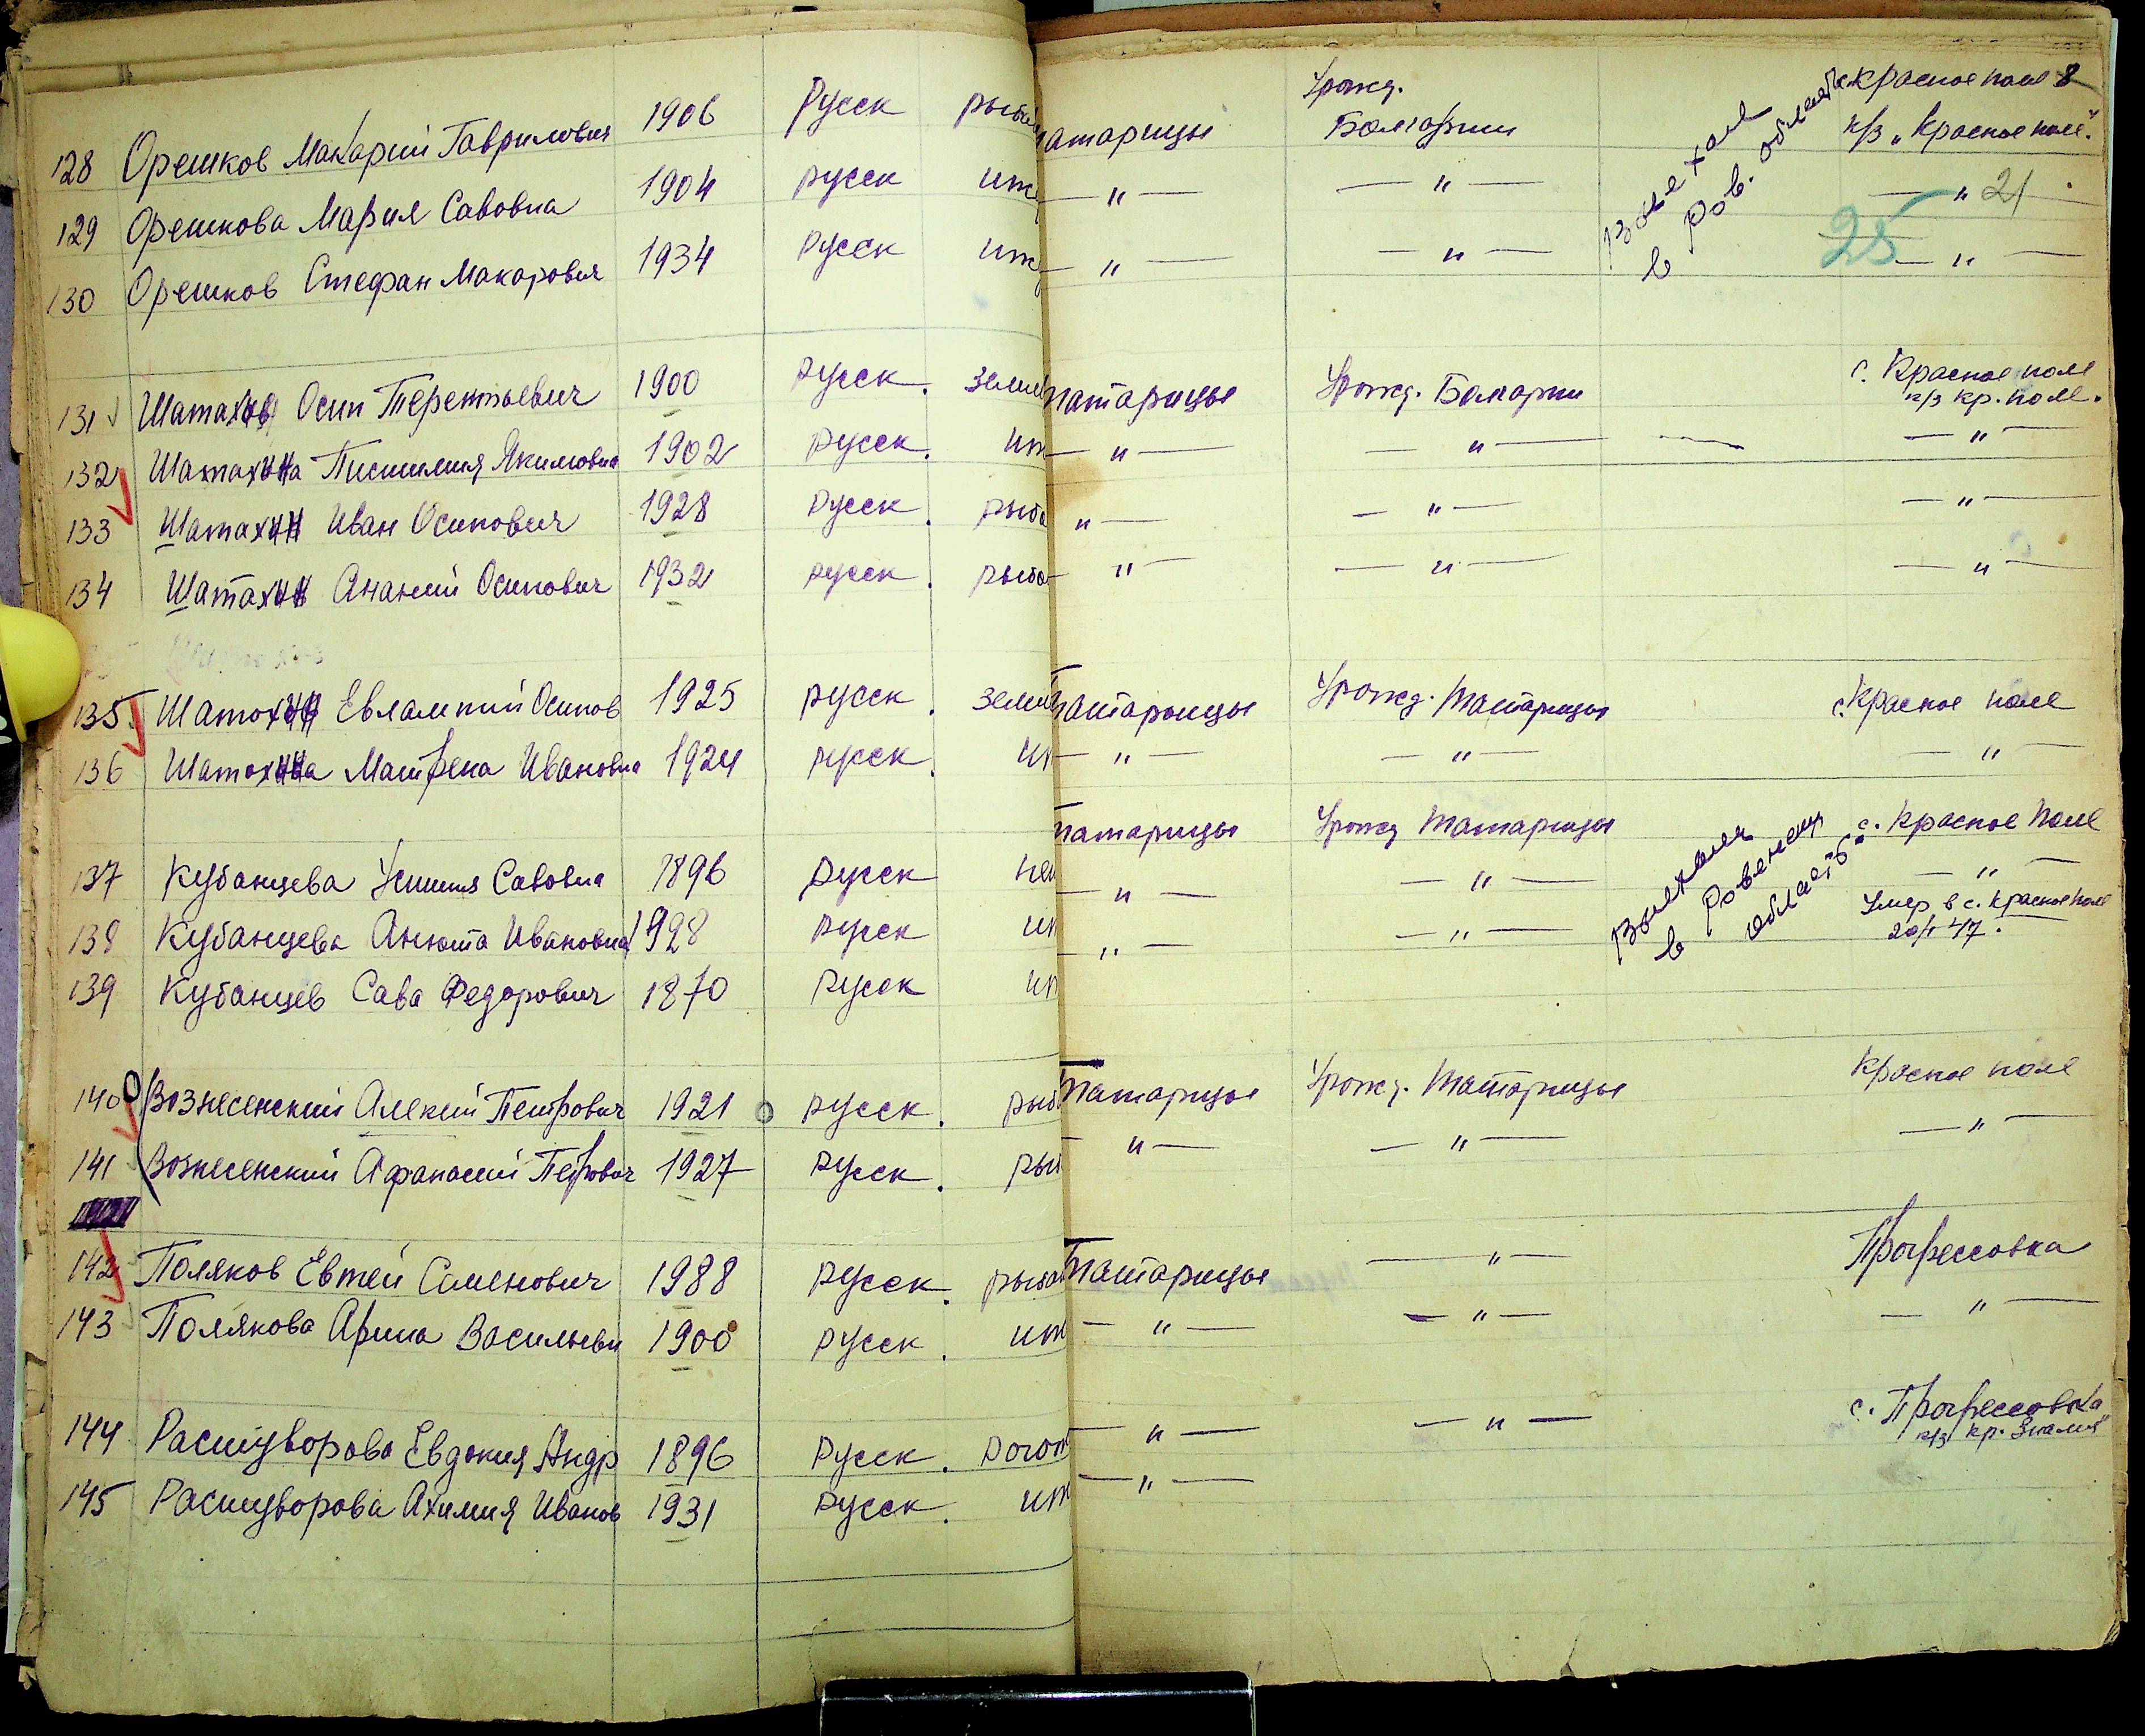 128 Орешков Макарий Гаврилович 1906 Русск рыба
129 Орешкова Мария Савовна 1904 русск иж
130 Орешков Стефан Макарович 1934 русск иж
131 Шатахин Осип Терентьевич 1900 русск. земле
132 Шатахина Писимия Якимовна 1902 русск. иж
133 Шатахин Иван Осипович 1928 русск. рыба
134 Шатахин Ананий Осипович 1932 русск. рыба
135 Шатохин Евлампий Осипов 1925 русск. земле
136 Шатохина Матрена Ивановна 1924 русск. иж
137 Кубанцева Савовна 1896 русск
138 Кубанцева Анюта Ивановна 1928 русск иж
139 Кубанцев Сава Федорович 1870 русск иж
140 Вознесенский Алексей Петрович 1921 русск. рыб
141 Вознесенский Афанасий Петрович 1927 русск. рыб
142 Поляков Евтей Семенович 1988 русск. рыба
143 Полякова Арина Васильевн 1900 русск. иж
144 Растворова Евдокия Андр 1896 русск. рогож
145 Растворова Ахимия Иванов 1931 русск. иж
Урожд. Красное поле 8
атарицы Болгарии к/з „Красное поле".
— " — — " — — " 21
— " — — " — 25 — " —
Выехал
в Ров. область
Татарицы Урожд. Болгарии с. Красное поле
к/з кр. поле.
— " — — " — — — " —
" — — " — — " —
— " — — " — — " —
Татарицы Урожд. Татарицы с. Красное поле
— " — — " — — " —
Татарицы Урожд Татарицы с. Красное поле
— " — — " — — " —
— " — — " — Умер в с. Красное поле
20/I 47.
Выехали
в Ровенскую
область
Татарицы Урожд. Татарицы Красное поле
— " — — " — — " —
Татарицы — " — Прогрессовка
— " — — " — — " —
— " — — " — с. Прогрессовка
к/з кр. Знамя"
— " —